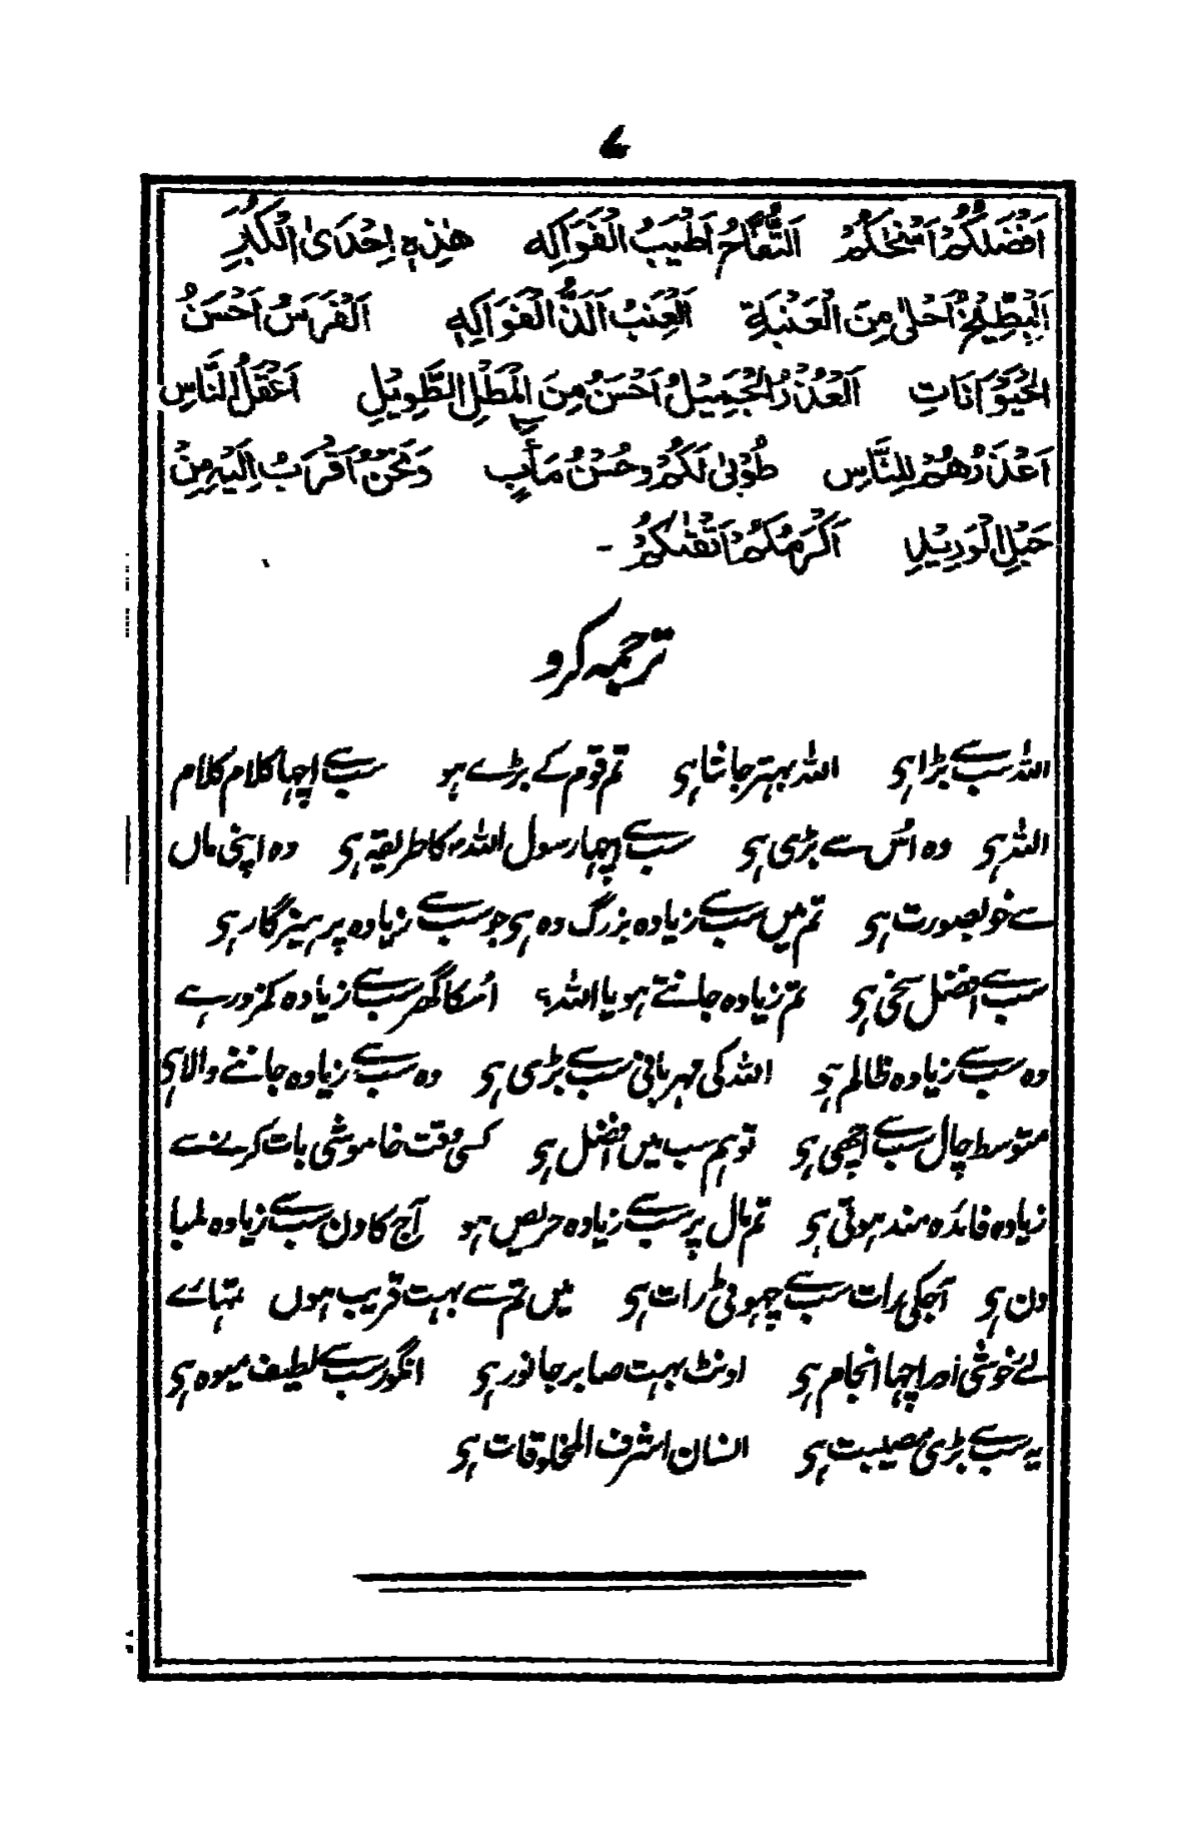 ۷
اَفْضَلُكُمْ اَسْخٰكُمْ اَلتُّفَّاحُ اَطْيَبُ الْفَوَاكِهِ هٰذِهٖ اِحْدَى الْكُبَرِ
اَلْبِطِّيْخُ اَحْلٰى مِنَ الْعِنَبَةِ اَلْعِنَبُ اَلَذُّ الْفَوَاكِهِ اَلْفَرَسُ اَحْسَنُ
الْحَيَوَانَاتِ اَلْعُذْرُ الْجَمِيْلُ اَحْسَنُ مِنَ الْمَطْلِ الطَّوِيْلِ اَعْقَلُ النَّاسِ
اَعْذَرُهُمْ لِلنَّاسِ طُوْبٰى لَكُمْ وَحُسْنُ مَاٰبٍ وَنَحْنُ اَقْرَبُ اِلَيْهِ مِنْ
حَبْلِ الْوَرِيْدِ اَكْرَمُكُمْ اَتْقٰىكُمْ -
ترجمہ کرو
اللہ سب سے بڑا ہی اللہ بہتر جانتا ہی تم قوم کے بڑے ہو سب سے اچہا کلام کلام
اللہ ہی وہ اُس سے بڑی ہی سب سے اچہا رسول اللہ کا طریقہ ہی وہ اپنی ماں
سے خوبصورت ہی تم میں سب سے زیادہ بزرگ وہ ہی جو سب سے زیادہ پرہیزگار ہی
سب سے افضل سخی ہی تم زیادہ جانتے ہو یا اللہ؟ اُسکا گھر سب سے زیادہ کمزور ہے
وہ سب سے زیادہ ظالم ہی اللہ کی مہربانی سب سے بڑی ہی وہ سب سے زیادہ جاننے والا ہی
متوسط چال سب سے اچھی ہی تو ہم سب میں افضل ہی کسی وقت خاموشی بات کرنے سے
زیادہ فائدہ مند ہوتی ہی تم مال پر سب سے زیادہ حریص ہو آج کا دن سب سے زیادہ لمبا
دن ہی آجکی رات سب سے چہوٹی رات ہی میں تم سے بہت قریب ہوں تہارے
لئے خوشی اور اچہا انجام ہی اونٹ بہت صابر جانور ہی انگور سب سے لطیف میوہ ہی
یہ سب سے بڑی مصیبت ہی انسان اشرف المخلوقات ہی